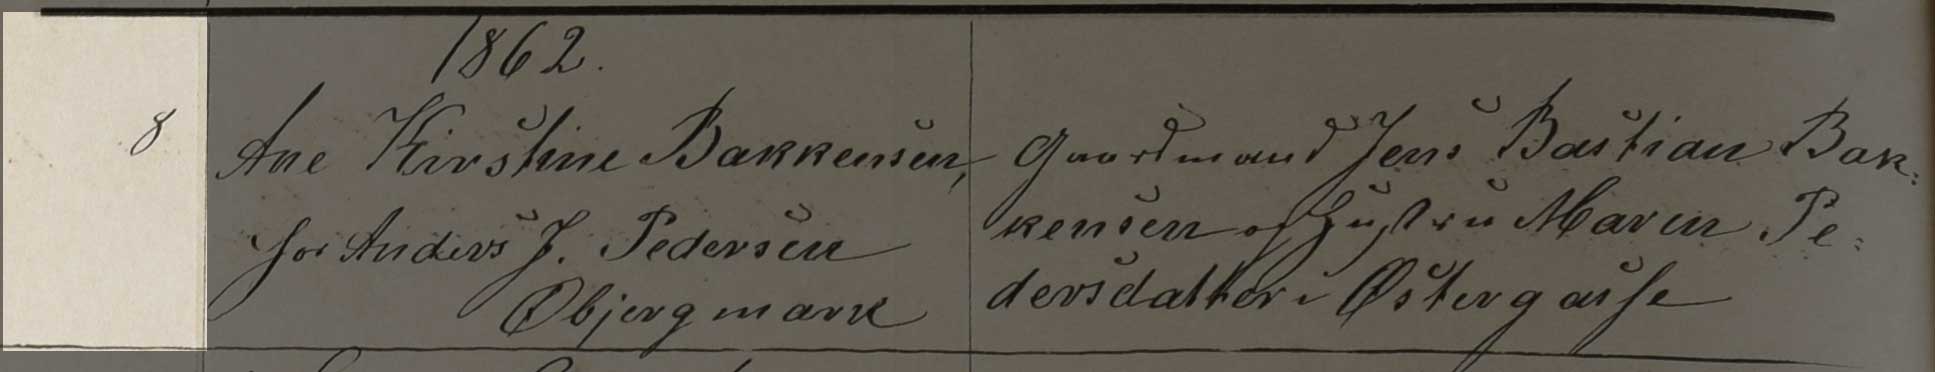 1862.
8
Ane Kirstine Bakkensen,
hos Anders J. Pedersen
Øbjergmark
Gaardmand Jens Bastian Bak-
kensen og Hustru Maren Pe-
dersdatter i Østergasse